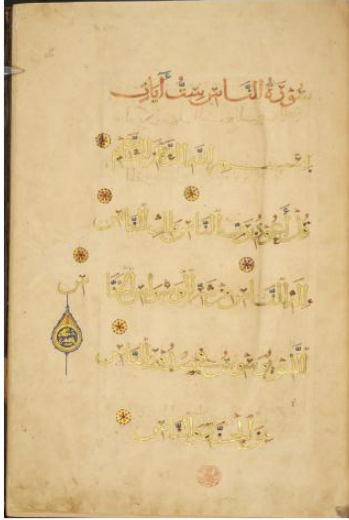 سُورَةُ النَّاسِ سِتُّ آيَاتٍ
بِسْمِ اللَّهِ الرَّحْمَنِ الرَّحِيمِ
قُلْ أَعُوذُ بِرَبِّ النَّاسِ مَلِكِ النَّاسِ
إِلَهِ النَّاسِ مِنْ شَرِّ الْوَسْوَاسِ الْخَنَّاسِ
الَّذِي يُوَسْوِسُ فِي صُدُورِ النَّاسِ
مِنَ الْجِنَّةِ وَالنَّاسِ